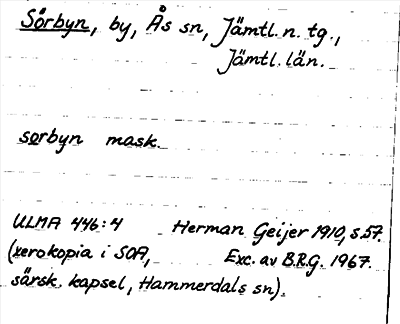 Sörbyn, by, Ås sn, Jämtl. n. tg.,
Jämtl. län.
sørbyn mask.
ULMA 446:4 Herman Geijer 1910, s 57.
(xerokopia i SOA, Exc. av B.R.G. 1967.
särsk. kapsel, Hammerdals sn).